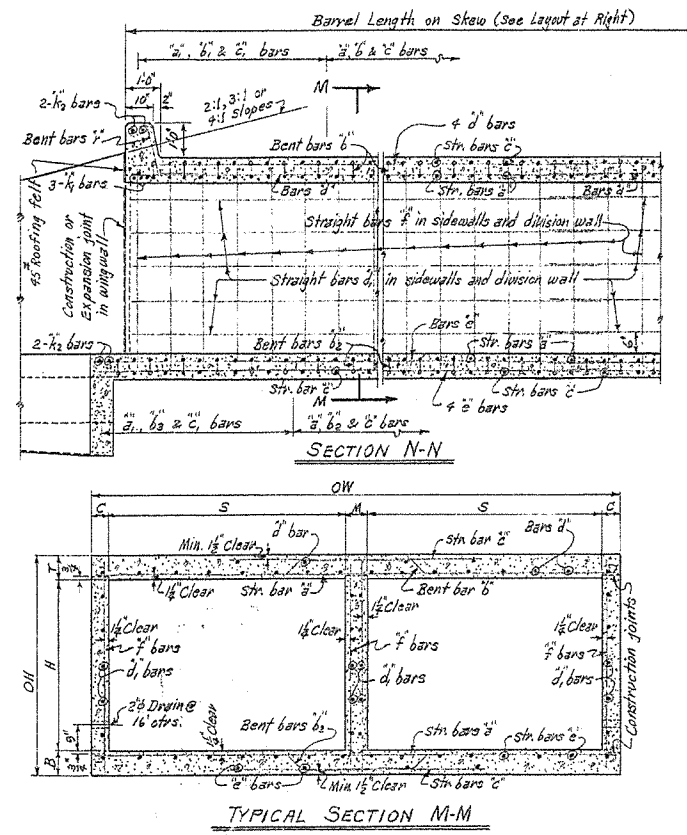 Barrel Length on Skew (See Layout at Right)
"a₁", "b₁" & "c₁" bars
"a", "b" & "c" bars
1'-0"
10" 2"
M
2-"k₂" bars
2:1, 3:1 or
4:1 slopes
Bent bars "r"
1'-0"
Bent bars "b"
4 "d" bars
Str. bars "c"
3-"k₁" bars
Bars "d"
Str. bars "a"
Bars "d"
45# Roofing felt
Construction or
Expansion joint
in wingwall
Straight bars "f" in sidewalls and division wall
Straight bars "d₁" in sidewalls and division wall
2-"k₂" bars
Bent bars "b₂"
Bars "e"
Str. bars "a"
6"
Str. bar "c"
Str. bars "c"
M
4 "e" bars
"a₁", "b₃" & "c₁" bars
"a", "b₂" & "c" bars
SECTION N-N
OW
C S M S C
"d" bar
Min. 1½" Clear
Str. bar "c"
Bars "d"
T
3½"
1¼" Clear
Str. bar "a"
Bent bar "b"
1½" Clear
1½" Clear
1½" Clear
1½" Clear
"f" bars
"f" bars
"f" bars
"d₁" bars
"d₁" bars
"d₁" bars
Construction joints
OH
H
2"ø Drain @
16' ctrs.
9"
Bent bars "b₂"
1½" Clear
Str. bars "a"
Str. bars "e"
B
3½"
"e" bars
Min. 1½" Clear
Str. bars "c"
TYPICAL SECTION M-M